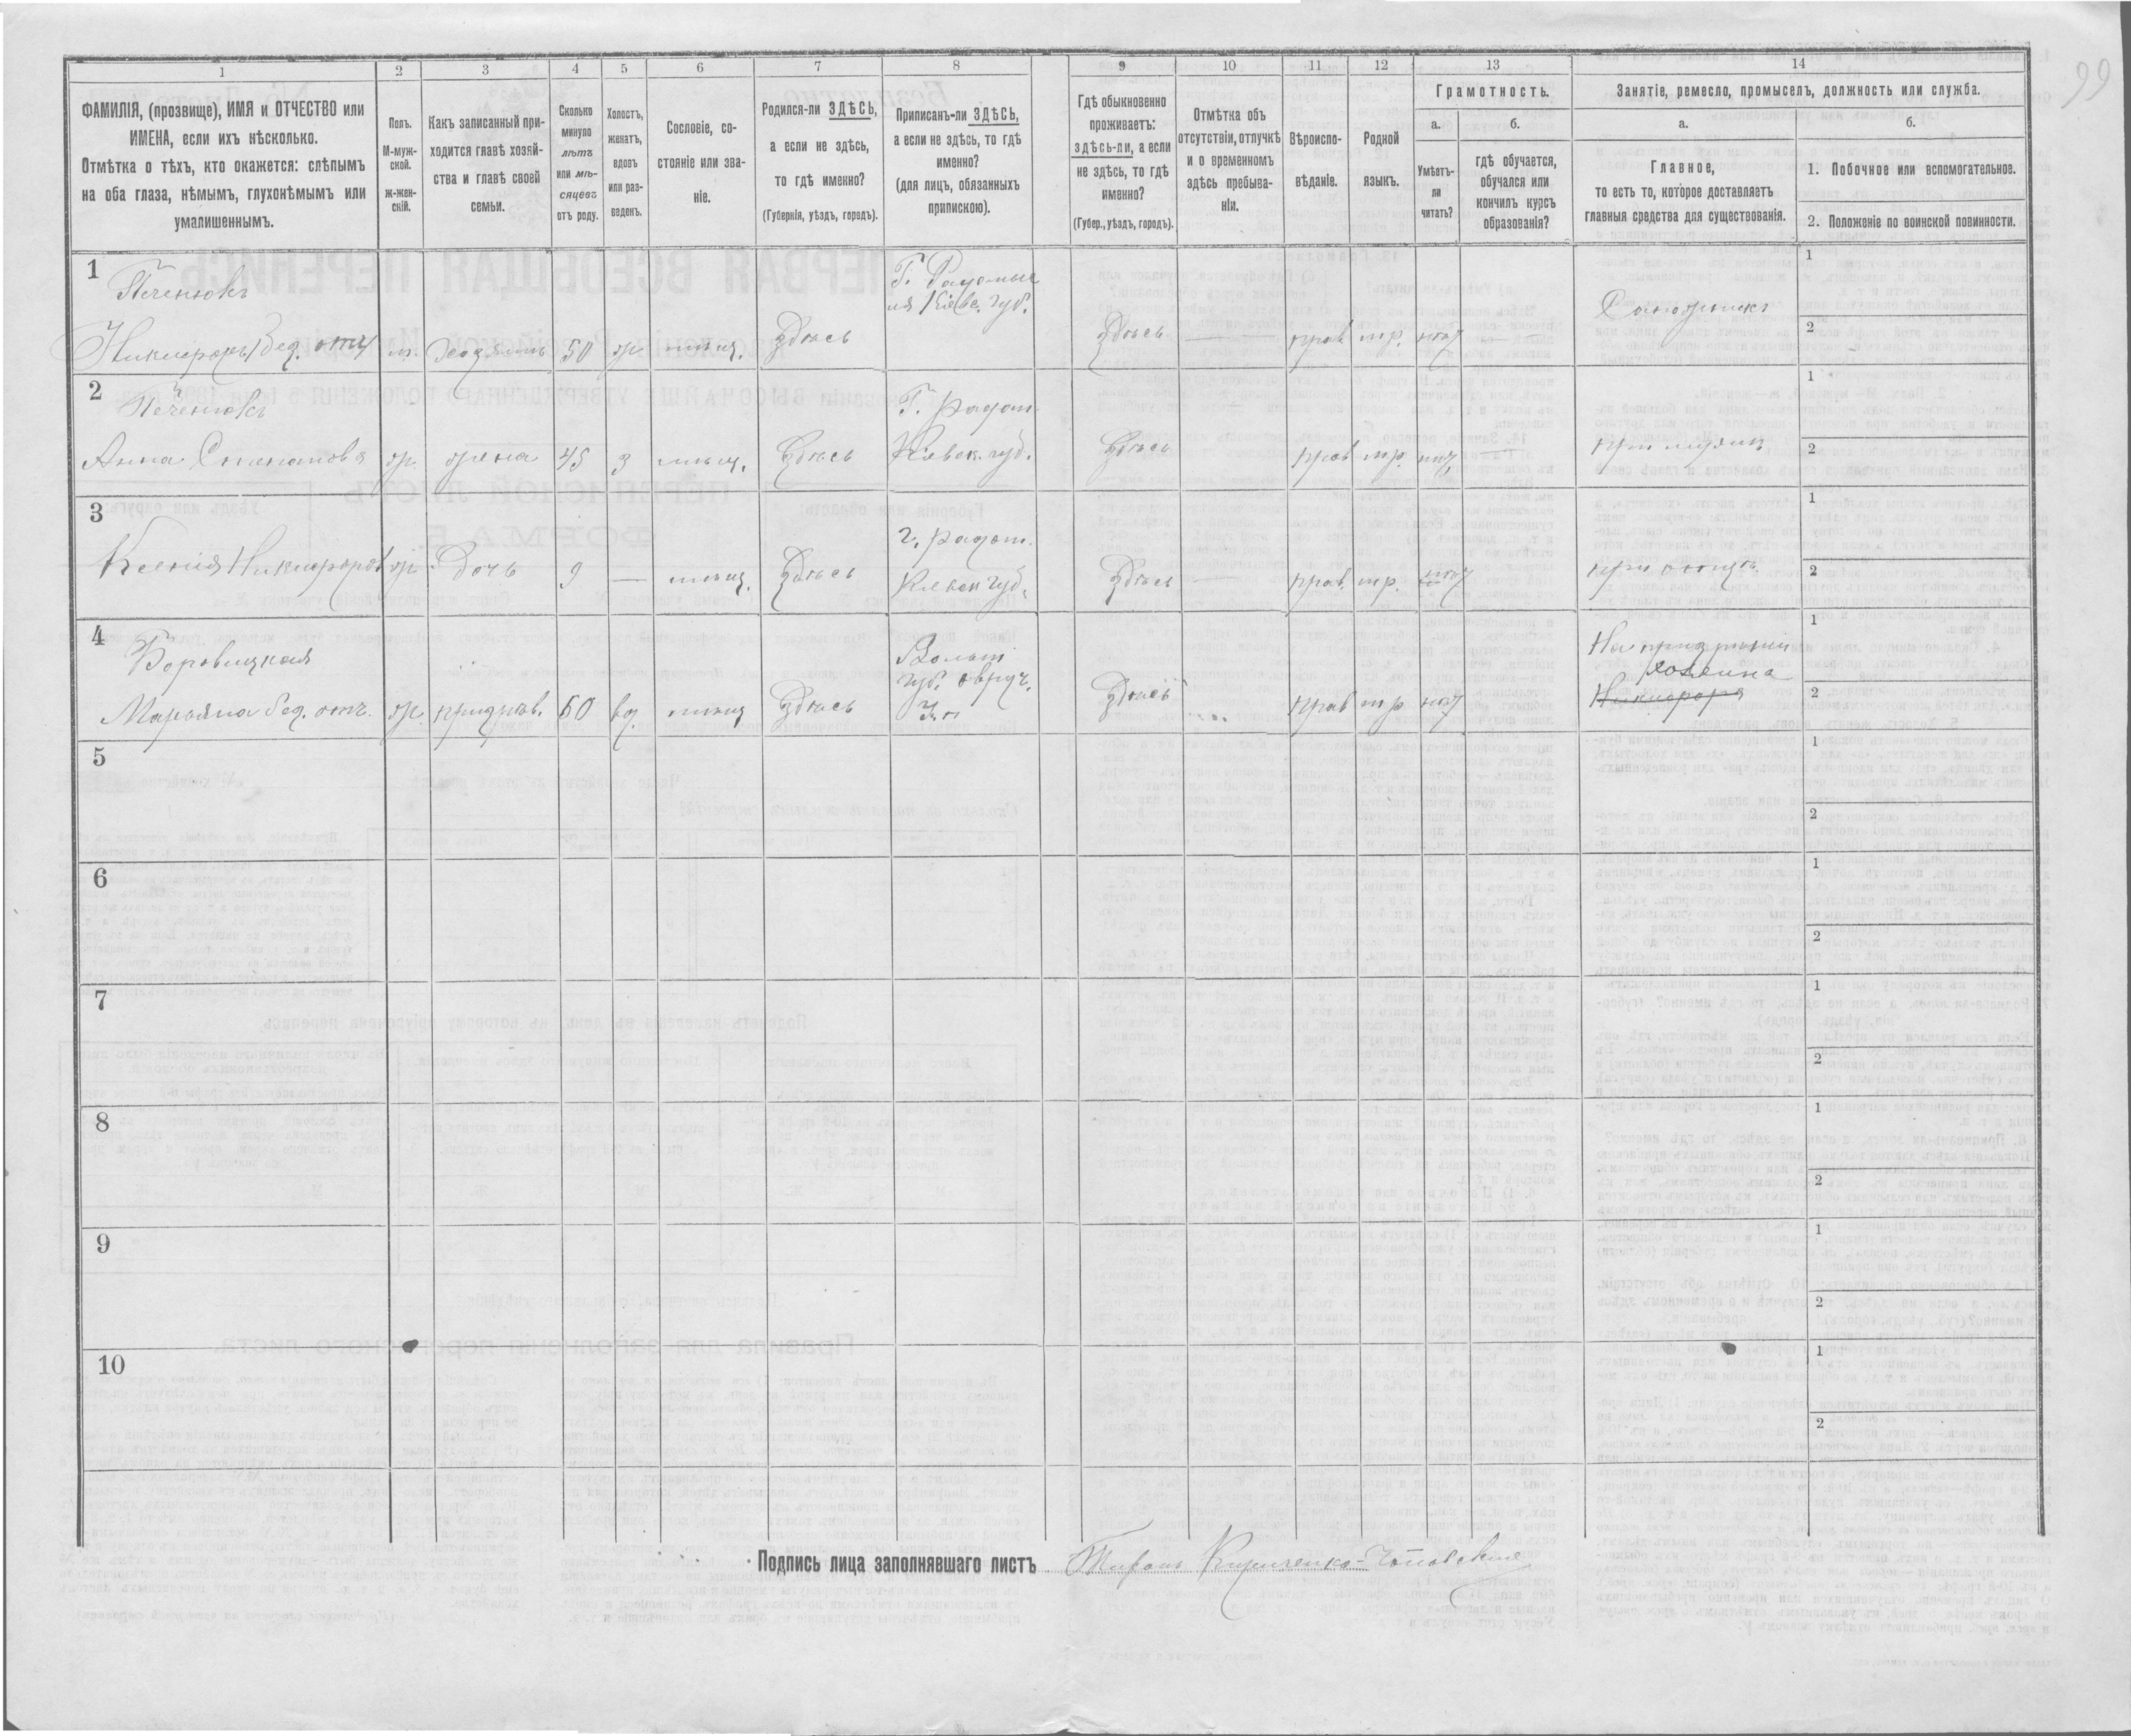 99
1 2 3 4 5 6 7 8 9 10 11 12 13 14
ФАМИЛІЯ, (прозвище), ИМЯ и ОТЧЕСТВО или
ИМЕНА, если ихъ нѣсколько.
Отмѣтка о тѣхъ, кто окажется: слѣпымъ
на оба глаза, нѣмымъ, глухонѣмымъ или
умалишеннымъ.
Полъ.
М-муж-
ской.
ж-жен-
скій.
Какъ записанный при-
ходится главѣ хозяй-
ства и главѣ своей
семьи.
Сколько
минуло
лѣтъ
или мѣ-
сяцевъ
отъ роду.
Холостъ,
женатъ,
вдовъ
или раз-
веденъ.
Сословіе, со-
стояніе или зва-
ніе.
Родился-ли ЗДѢСЬ,
а если не здѣсь,
то гдѣ именно?
(Губернія, уѣздъ, городъ).
Приписанъ-ли ЗДѢСЬ,
а если не здѣсь, то гдѣ
именно?
(для лицъ, обязанныхъ
припискою).
Гдѣ обыкновенно
проживаетъ:
здѣсь-ли, а если
не здѣсь, то гдѣ
именно?
(Губер., уѣздъ, городъ).
Отмѣтка объ
отсутствіи, отлучкѣ
и о временномъ
здѣсь пребыва-
ніи.
Вѣроиспо-
вѣданіе.
Родной
языкъ.
Грамотность.
а.
Умѣетъ-
ли
читать?
б.
гдѣ обучается,
обучался или
кончилъ курсъ
образованія?
Занятіе, ремесло, промыселъ, должность или служба.
а.
Главное,
то есть то, которое доставляетъ
главныя средства для существованія.
б.
1. Побочное или вспомогательное.
2. Положеніе по воинской повинности.
1
Печенюкъ
Никифоръ без. отч м. хозяинъ 50 ж мѣщ. Здѣсь
Г. Радомыс
ля Кіевс. губ.
Здѣсь — прав. мр. нѣт
Сапожникъ
1
2
2
Печенюкъ
Анна Степанова ж. жена 45 з мѣщ. Здѣсь
Г. Радом.
Кіевск. губ.
Здѣсь прав мр. нѣт
при мужѣ
1
2
3
Ксенія Никифоров ж дочь 9 — мѣщ. Здѣсь
г. Радом.
Кіевск губ.
Здѣсь — прав. мр. нѣт
при отцѣ
1
2
4
Боровицкая
Марьяна без. отч. ж. 60 вд. мѣщ Здѣсь
Волын
губ. овруч.
Здѣсь прав мр нѣт
На призрѣніи
хозяина
Никифора
1
2
5
1
2
6
1
2
7
1
2
8
1
2
9
1
2
10
1
2
Подпись лица заполнявшаго листъ